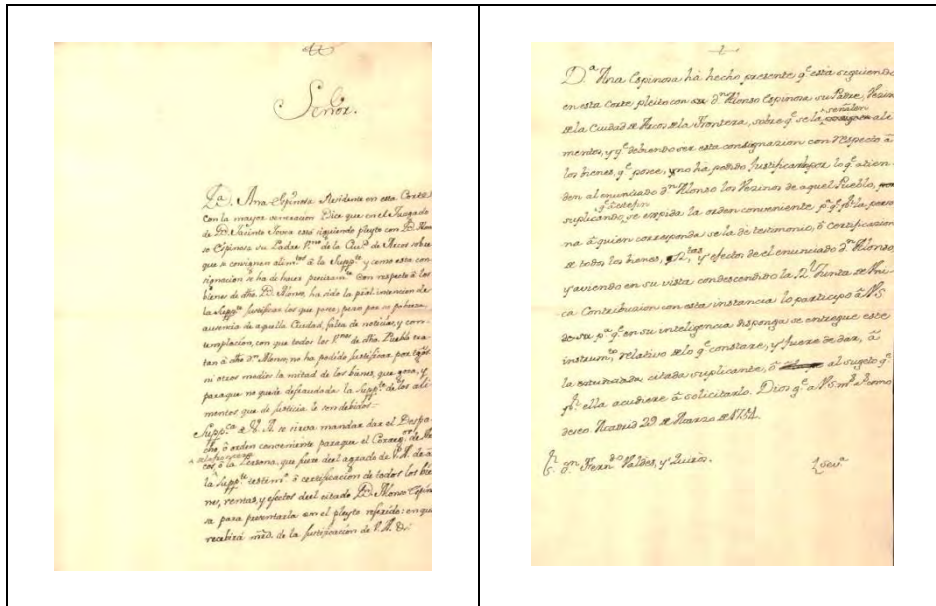 Señor.
Dª. Ana Espinosa Residente en esta Corte
con la mayor veneracion Dice que en el Juzgado
de D. está siguiendo pleyto con D. Alon
so Espinosa su Padre Vno de la Ciud. de Arcos sobre
que se consignen alimtos á la Suppte. y como esta con
signacion se ha de hacer precisamte con respecto á los
bienes de dho. D. Alonso, ha sido la pral. intencion de
la Suppte justificar los que posee; pero por su pobreza,
ausencia de aquella Ciudad, falta de noticias, y con
templacion, con que todos los Vnos de dho. Pueblo tra
tan á dho Dn Alonso, no ha podido justificar por tgos.
ni otros medios la mitad de los bienes, que goza, y
para que no quede defraudada la Suppte de los ali
mentos que de justicia le son debidos=
Suppca á V. A. se sirva mandar dar el Despa
cho, ó orden conveniente para que el Corregor de Ar
cos, ó la Persona, que fuere del agrado de V. A. dé á
la Suppte testimo ó certificacion de todos los bie
nes, rentas, y efectos del citado D. Alonso Espino
sa para presentarla en el pleyto referido: en que
recibirá mrd. de la justificacion de V. A. &.
Dª Ana Espinosa há hecho presente qe está siguiendo
en esta Corte pleito con dn Alonso Espinosa su Padre, Vezino
de la Ciudad de Arcos de la Frontera, sobre qe se la señalen ali
mentos, y qe debiendo ser esta consignazion con respecto á
los bienes, qe posee, y no há podido Justificar por lo qe atien
den al enunciado dn Alonso los Vezinos de aquel Pueblo,
suplicando se expida la orden conveniente pa qe la perso
na á quien corresponda se la dé testimonio, ó Certificazion
de todos los bienes, Rtas, y efectos de el enunciado dn Alonso,
y aviendo en su vista condescendido la Rl Junta de Uni
ca Contribucion con esta instancia lo participo á VS
de su pa qe en su inteligencia disponga se entregue este
instrumto, relativo de lo qe constare, y fuere de dar, á
la citada suplicante, ó al sugeto qe
pr ella acudiere á solicitarlo. Dios gе á VS ms as como
deseo Madrid 29 de Marzo de 1754.
Sr dn Ferndo Valdes, y Quiros.